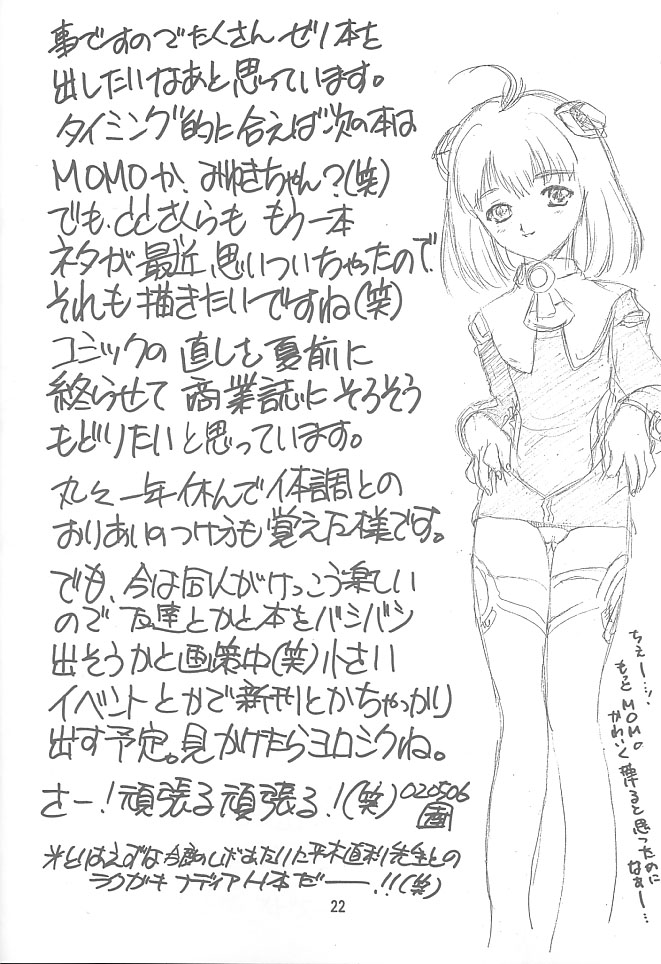 事ですのでたくさん ゼノ本を
出したいなあと思っています。
タイミング的に合えば次の本は
MOMOか、みゆきちゃん?(笑)
でも、ととさくらも もう一本
ネタが最近、思いついちゃったので、
それも描きたいですね(笑)
コミックの直しを夏前に
終らせて 商業誌にそろそろ
もどりたいと思っています。
丸々一年休んで体調との
おりあいのつけ方も覚えた様です。
でも、今は同人がけっこう楽しい
ので 友達とかと本をバシバシ
出そうかと画策中(笑)小さい
イベントとかで新刊とかちゃっかり
出す予定。見かけたらヨロシクね。
さー!頑張る頑張る!(笑) 020506
※とりあえずは今度の 平木直利先生との
ラクガキ ナディアH本だーー!!(笑)
ちぇー…、
もっとMOMO
かわいく
描けると思ったのに
なぁー…
22